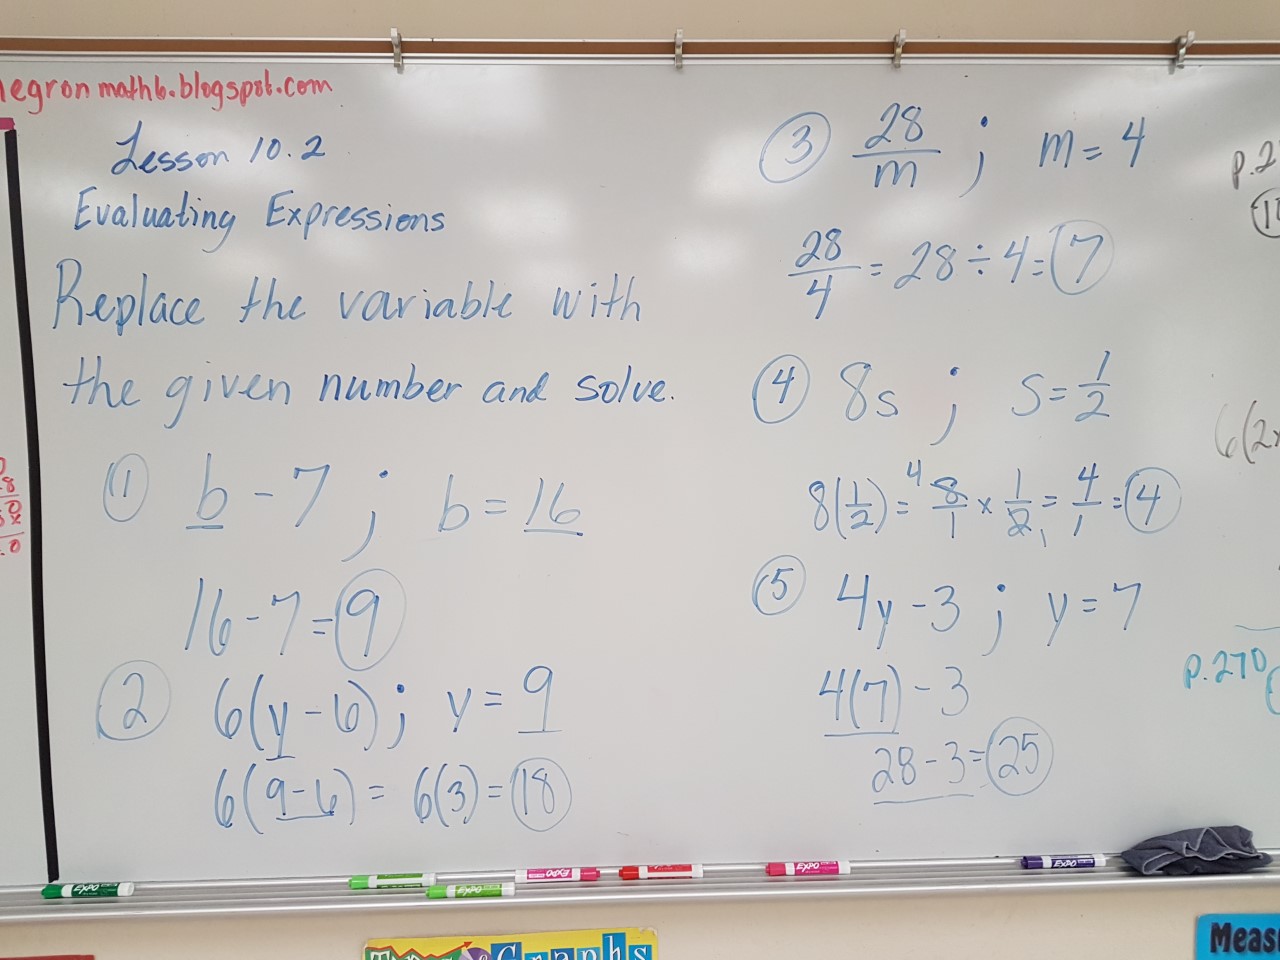 negronmath6.blogspot.com
Lesson 10.2
Evaluating Expressions
Replace the variable with
the given number and solve.
① b - 7 ; b = 16
16 - 7 = 9
② 6(y - 6) ; y = 9
6(9 - 6) = 6(3) = 18
③ 28/m ; m = 4
28/4 = 28 ÷ 4 = 7
④ 8s ; s = 1/2
8(1/2) = 4 8/1 x 1/2 1 = 4/1 = 4
⑤ 4y - 3 ; y = 7
4(7) - 3
28 - 3 = 25
6(2x
p.270
EXPO
EXPO
EXPO
EXPO
EXPO
Graphs
Meas